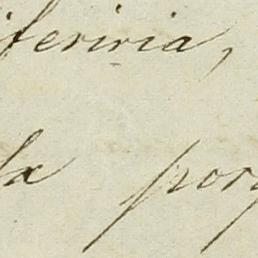 feriria,
la por